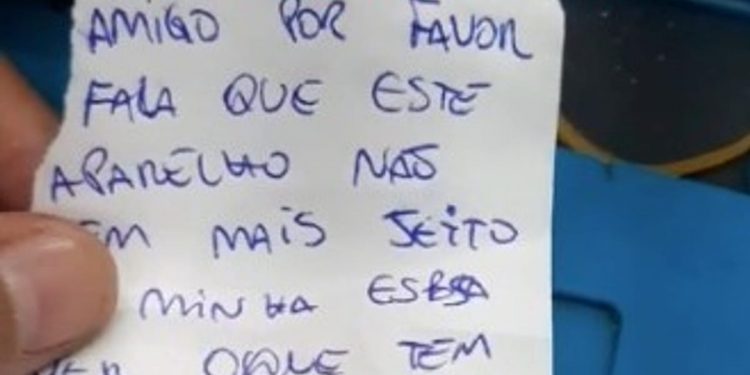 AMIGO POR FAVOR
FALA QUE ESTE
APARELHO NÃO
EM MAIS JEITO
MINHA ESPOSA
VER OQUE TEM